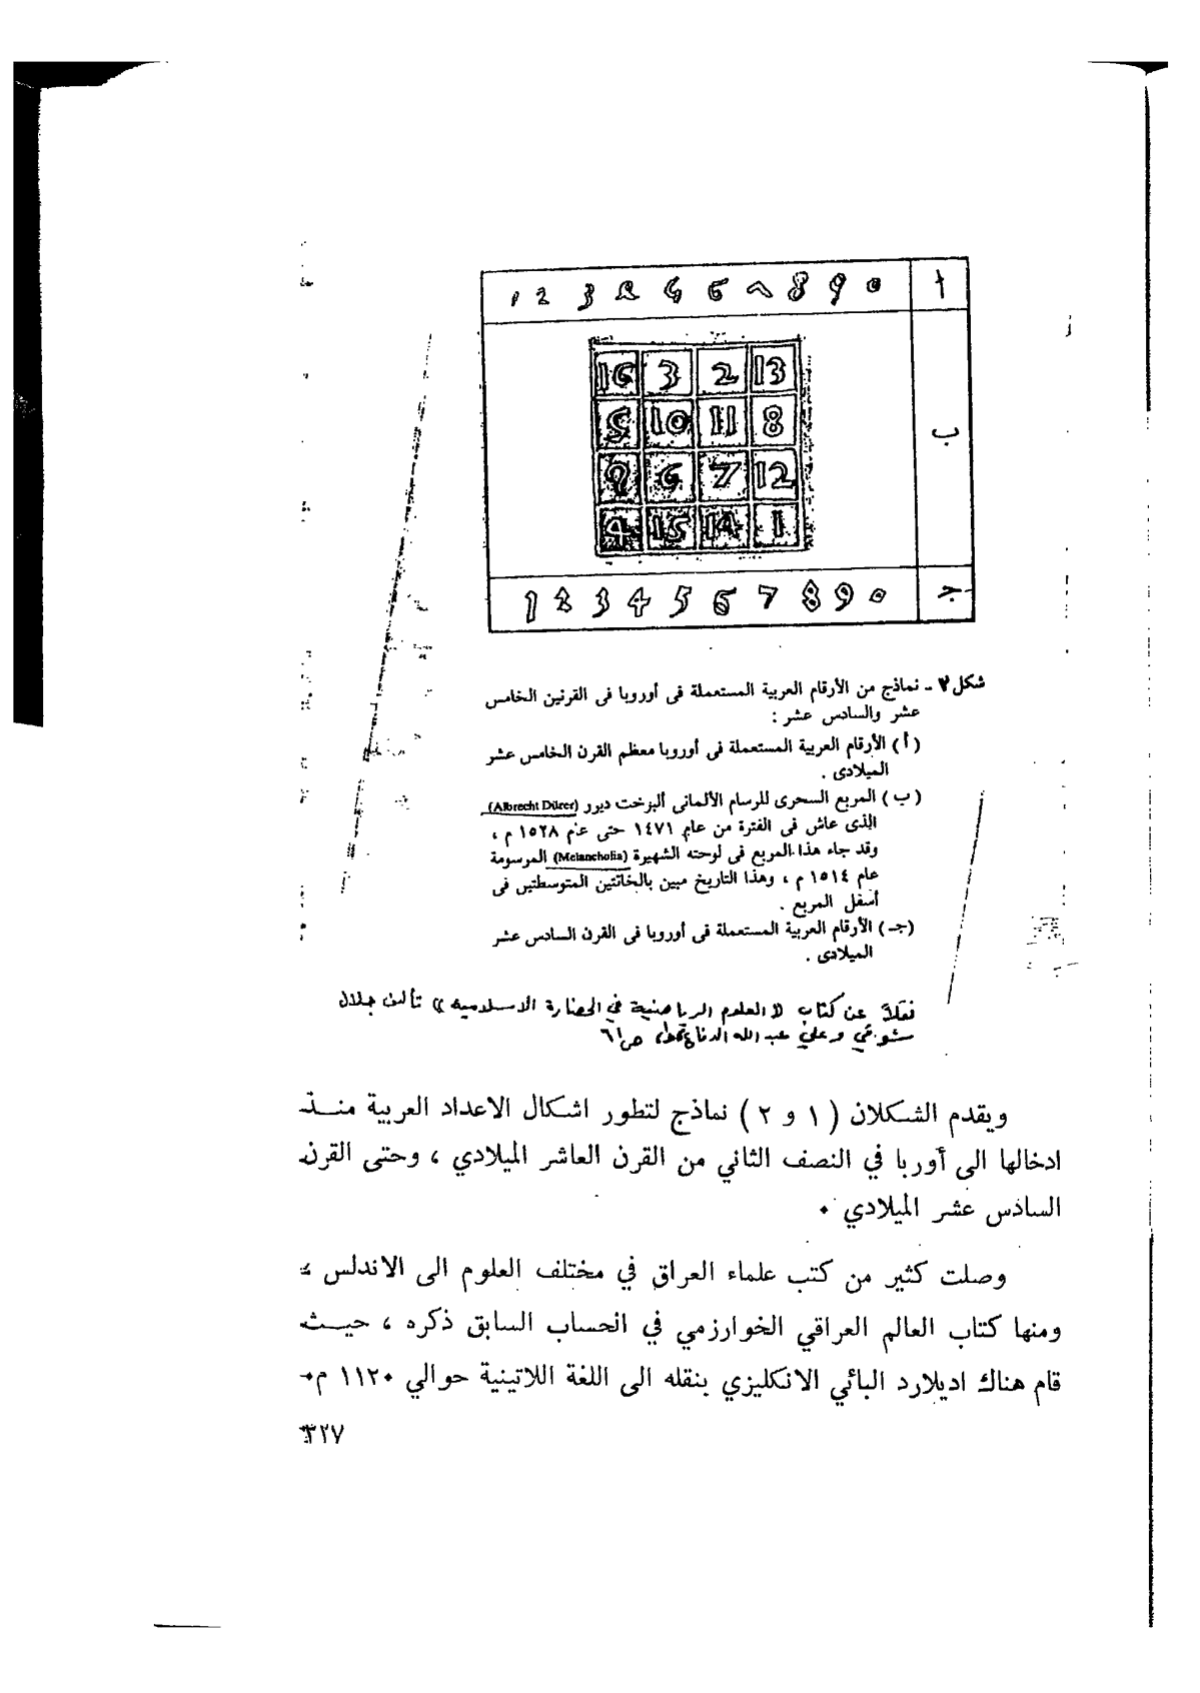 1 2 3 4 5 6 7 8 9 0 أ
16 3 2 13
5 10 11 8
ب
9 6 7 12
4 15 14 1
1 2 3 4 5 6 7 8 9 0 جـ
شكل ٢ ـ نماذج من الأرقام العربية المستعملة فى أوروبا فى القرنين الخامس
عشر والسادس عشر :
( أ ) الأرقام العربية المستعملة فى أوروبا معظم القرن الخامس عشر
الميلادى .
( ب ) المربع السحرى للرسام الألمانى ألبرخت ديرر (Albrecht Dürer)
الذى عاش فى الفترة من عام ١٤٧١ حتى عام ١٥٢٨ م ،
وقد جاء هذا المربع فى لوحته الشهيرة (Melancholia) المرسومة
عام ١٥١٤ م ، وهذا التاريخ مبين بالخانتين المتوسطتين فى
أسفل المربع .
(جـ) الأرقام العربية المستعملة فى أوروبا فى القرن السادس عشر
الميلادى .
نقلاً عن كتاب « العلوم الرياضية في الحضارة الاسلامية » تأليف جلال
شوقي وعلي عبدالله الدفاع ص ٦١
ويقدم الشكلان ( ١ و ٢ ) نماذج لتطور اشكال الاعداد العربية منذ
ادخالها الى أوربا في النصف الثاني من القرن العاشر الميلادي ، وحتى القرن
السادس عشر الميلادي ٠
وصلت كثير من كتب علماء العراق في مختلف العلوم الى الاندلس ،
ومنها كتاب العالم العراقي الخوارزمي في الحساب السابق ذكره ، حيث
قام هناك اديلارد الباثي الانكليزي بنقله الى اللغة اللاتينية حوالي ١١٢٠ م٠
٣٢٧